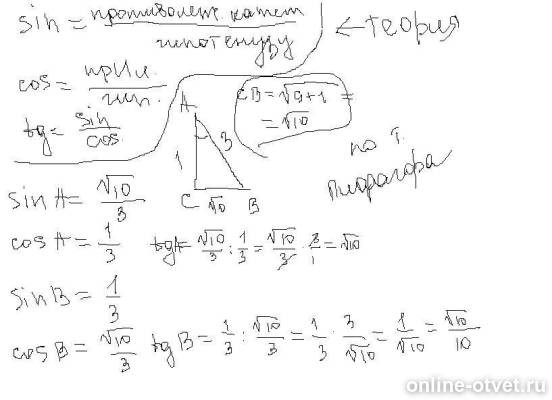 sin = противолеж. катет / гипотенузу
← теория
cos = прил. / гип.
tg = sin / cos
CB = √9+1 =
= √10
по т.
Пифагора
A
1
3
C √10 B
sin A = √10 / 3
cos A = 1/3 tgA = √10/3 : 1/3 = √10/3 · 3/1 = √10
sin B = 1/3
cos B = √10/3 tg B = 1/3 : √10/3 = 1/3 · 3/√10 = 1/√10 = √10/10
online-otvet.ru